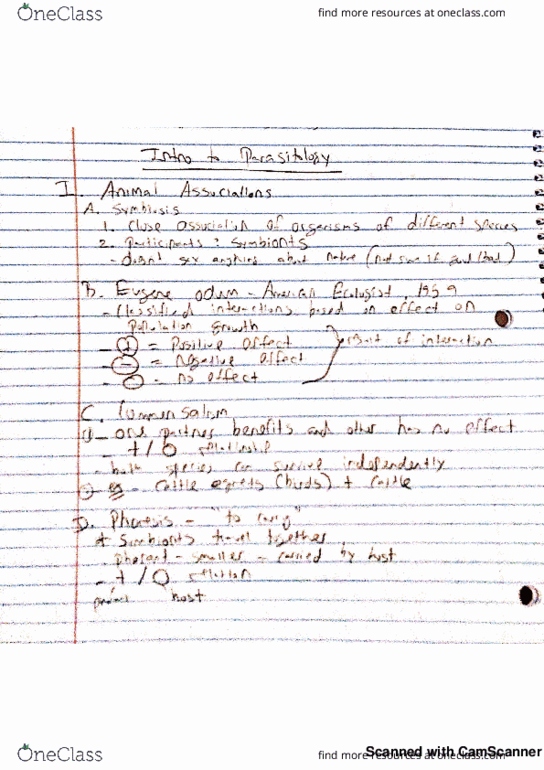 OneClass
find more resources at oneclass.com
Intro to Parasitology
I. Animal Associations
A. Symbiosis
1. Close association of organisms of different species
2. Participants: Symbionts
- doesn't say anything about nature (not sure if good/bad)
B. Eugene Odum - American Ecologist 1959
- Classified interactions based on effect on
population growth
- + = Positive affect
- − = Negative affect
- 0 = no effect
result of interaction
C. Commensalism
1) - one partner benefits and other has no effect
- + / 0 relationship
- both species can survive independently
2) eg - Cattle egrets (birds) + cattle
D. Phoresis - "to carry"
Symbionts travel together
- phoront - smaller - carried by host
- + / 0 relation
host
OneClass
find more resources at oneclass.com
Scanned with CamScanner